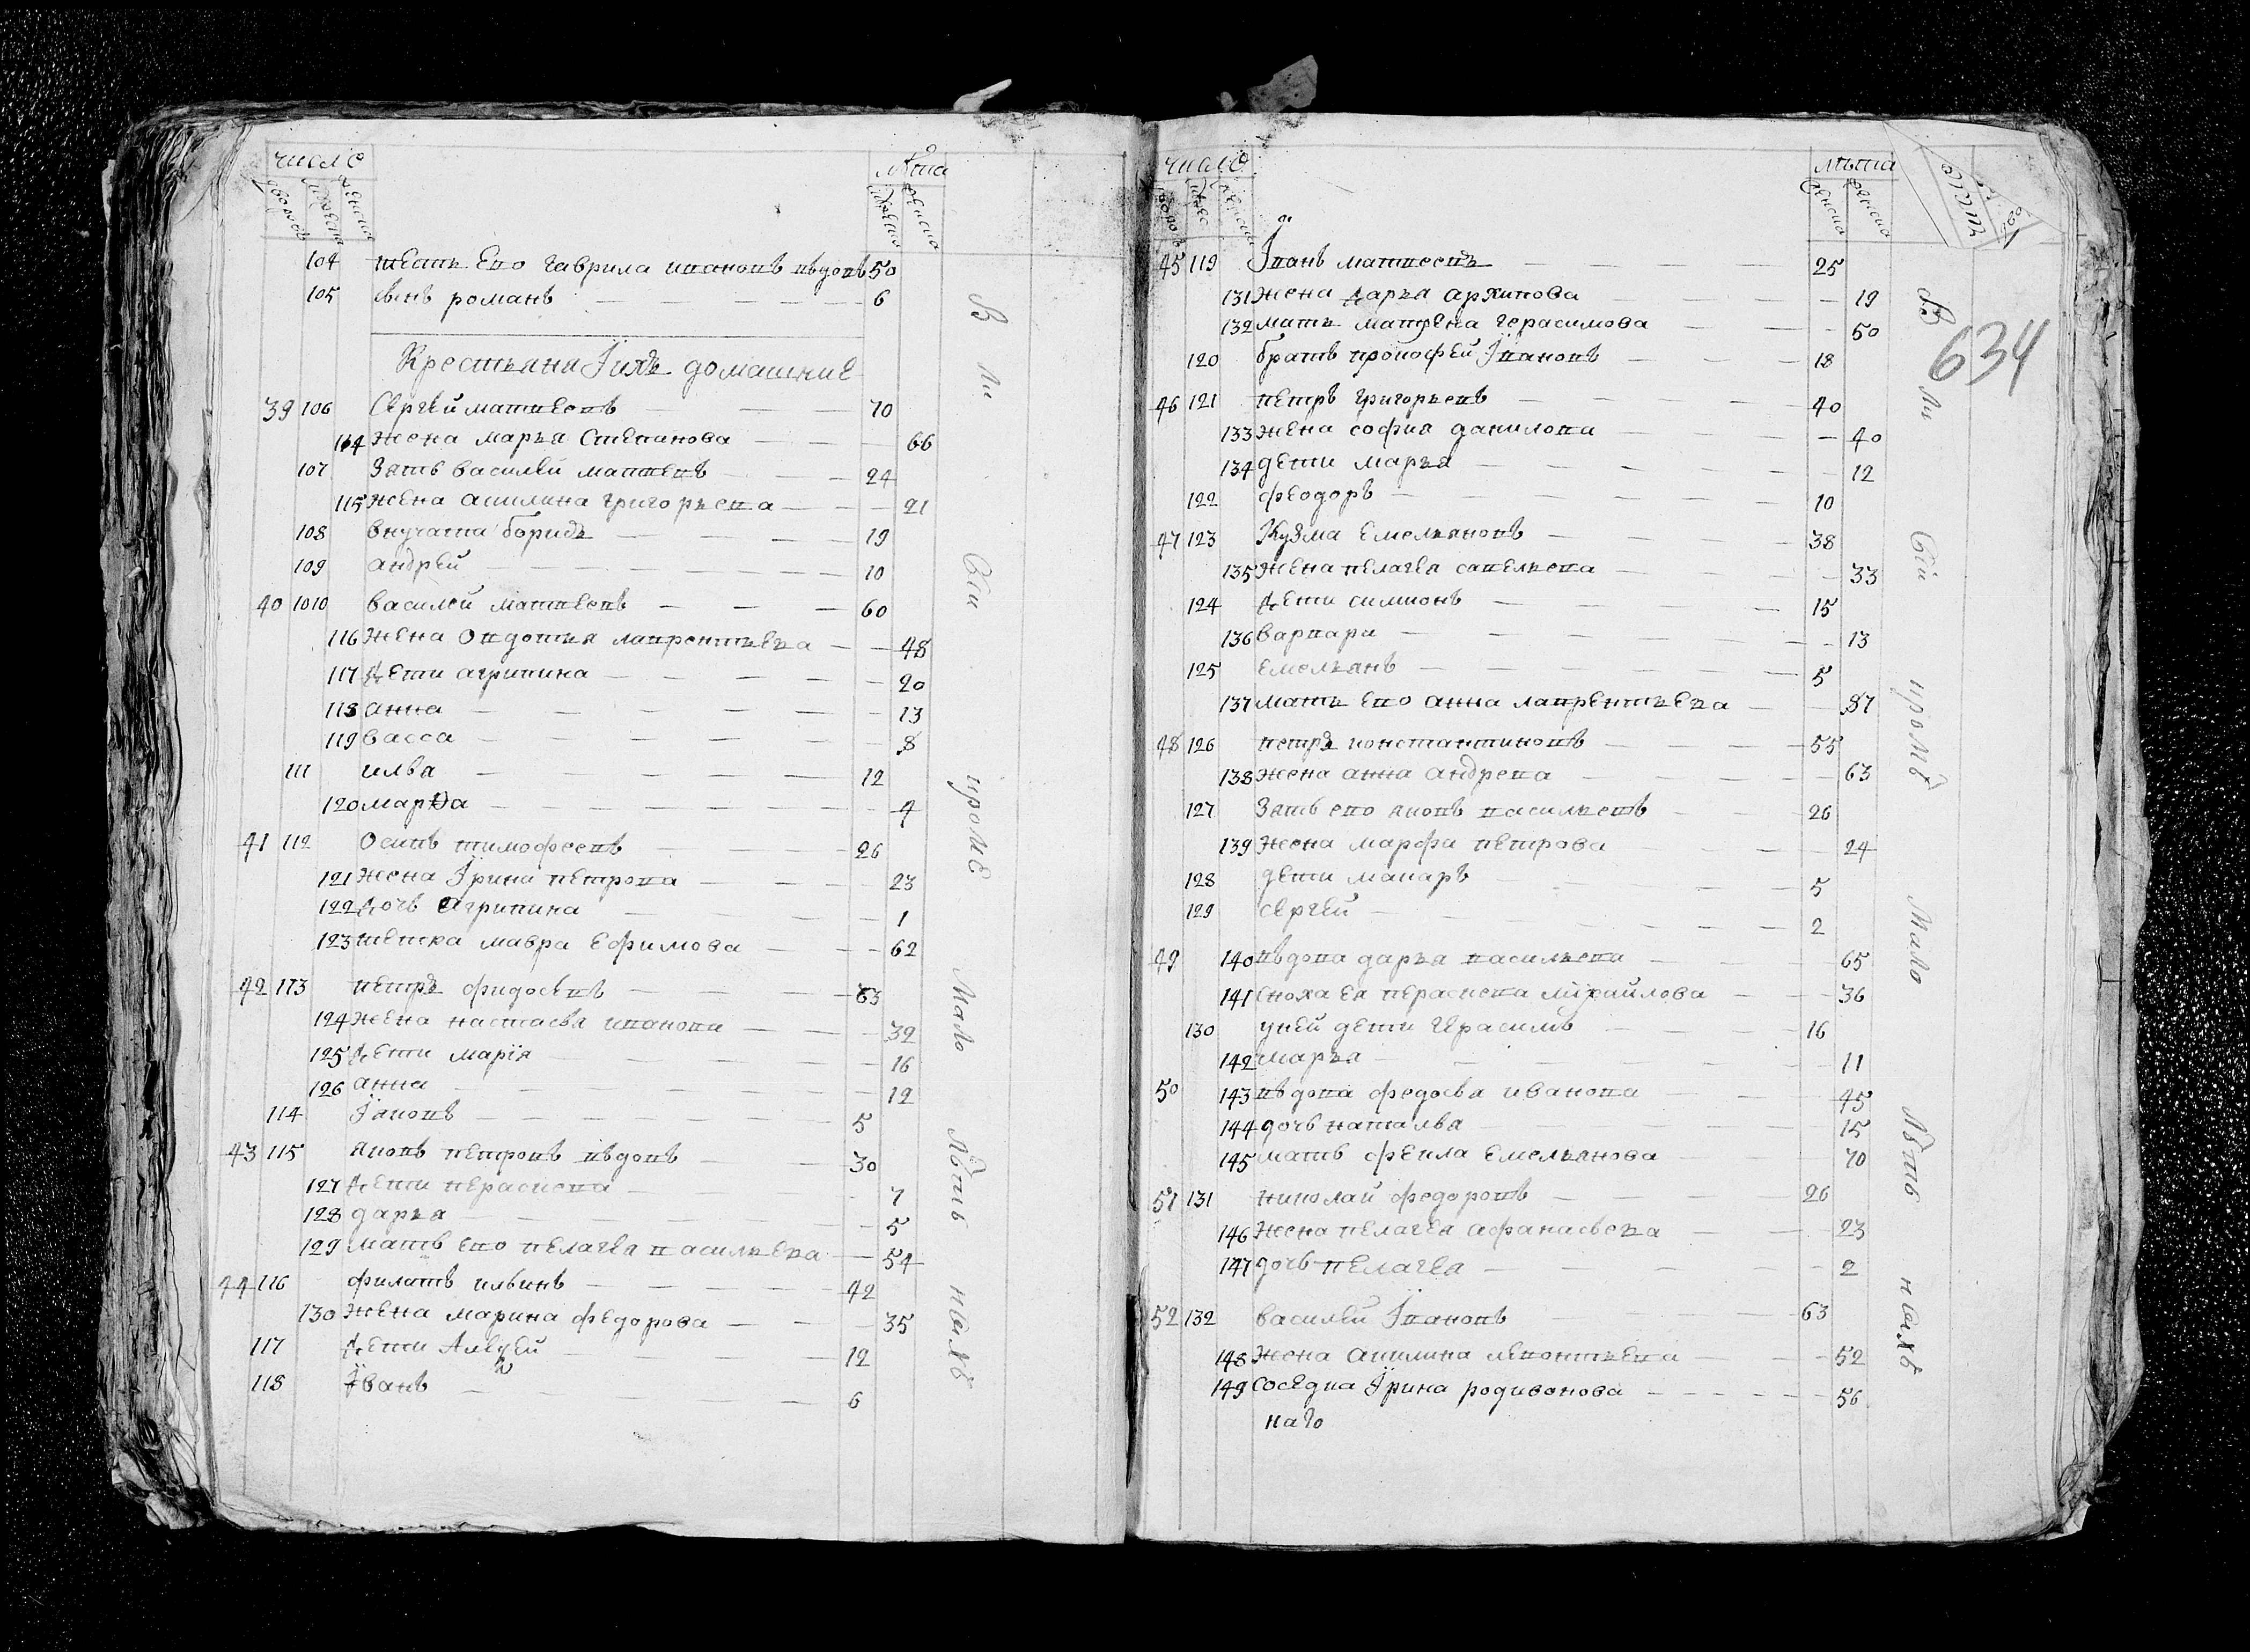 число
лѣта
104 тесть Его гаврила ивановъ вдовъ 50
105 сынъ романъ 6
Крестьяни Їихъ домашние
39 106 Сергей матвеевъ 70
114 жена марья Степанова 66
107 Зять василей матвеевъ 24
115 жена акилина григорьева 21
108 внучата борисъ 19
109 андрей 10
40 1010 василей матвеевъ 60
116 жена Овдотья лаврентьева 48
117 дети агрипина 20
118 анна 13
119 васса 8
111 илья 12
120 марθа 4
41 112 Осипъ тимофеевъ 26
121 жена Їрина петрова 23
122 дочь Агрипина 1
123 тетка мавра Ефимова 62
42 113 петръ фидосевъ 63
124 жена настасья иванова 39
125 дети марїя 16
126 анна 12
114 Їаковъ 5
43 115 яковъ петровъ вдовъ 30
127 дети перасковa 7
128 дарья 5
129 мать его пелагея васильева 54
44 116 филатъ ильинъ 42
130 жена марина федорова 35
117 дети Алексей 12
118 Їванъ 6
В ли сей кроме Мало лѣтъ нихъ
число
лѣта
634
45 119 Їванъ матвеевъ 25
131 жена дарья архипова 19
132 мать матрена герасимова 50
120 братъ прокофей Ївановъ 18
46 121 петръ григорьевъ 40
133 жена софия данилова 40
134 дети марья 12
122 феодоръ 10
47 123 Кузма Емельяновъ 38
135 жена пелагея савельева 33
124 дети симионъ 15
136 варвара 13
125 емельянъ 5
137 мать его анна лаврентьева 87
48 126 петръ константиновъ 55
138 жена анна андрева 63
127 Зять его яковъ васильевъ 26
139 жена марфа петрова 24
128 дети макаръ 5
129 сергей 2
49 140 вдова дарья васильева 65
141 сноха ея перасковa михайлова 36
130 у ней дети герасимъ 16
142 марья 11
50 143 вдова федосья иванова 45
144 дочь наталья 15
145 мать фекла емельянова 70
51 131 николай федоровъ 26
146 жена пелагея афанасьева 23
147 дочь пелагея 2
52 132 василей Ївановъ 63
148 жена акилина леонтьева 52
149 соседка Їрина родиванова 56
наго
В ли сей кромѣ Мало лѣтъ нихъ